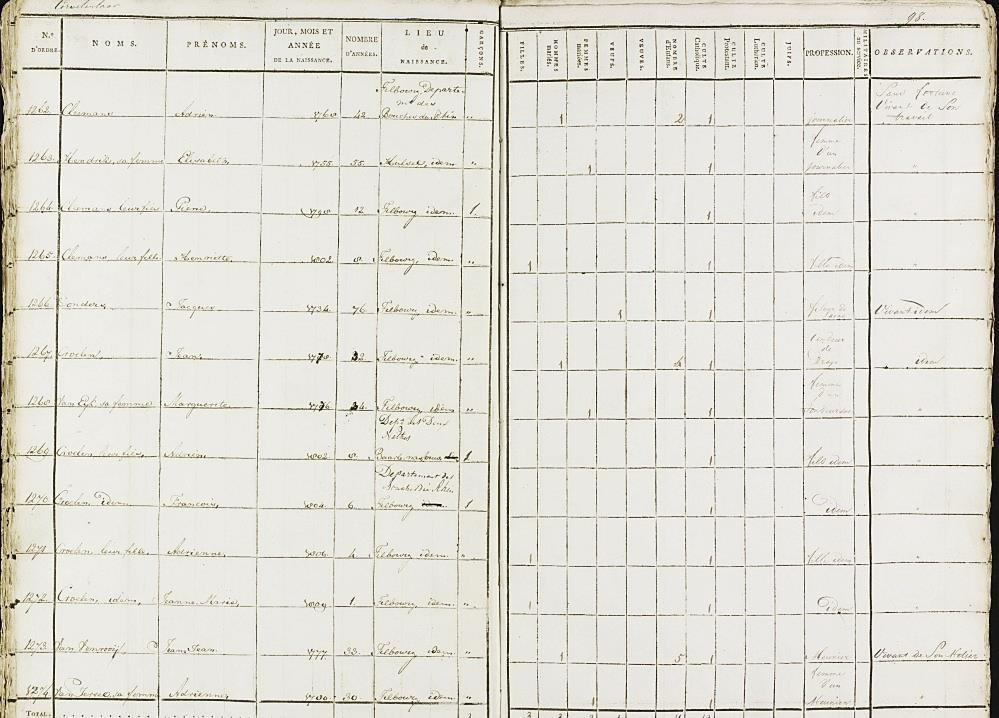 98.
N.º D'ORDRE. NOMS. PRÉNOMS. JOUR, MOIS ET ANNÉE DE LA NAISSANCE. NOMBRE D'ANNÉES. LIEU de NAISSANCE. GARÇONS. FILLES. HOMMES mariés. FEMMES mariées. VEUFS. VEUVES. NOMBRE d'Enfans. CULTE Catholique. CULTE Protestant. CULTE Luthérien. JUIFS. PROFESSION. MILITAIRES au service. OBSERVATIONS.
Tilbourg, Departe-
m des
1262. Clemans Adrien 1768 42 Bouches du Rhin " 1 2 1 journalier Sans fortune Vivant de Son travail
1263. Hendrikx, sa femme Elisabeth 1755 55. idem " 1 1 femme d'un journalier "
1264. Clemans leur fils Pierre 1798 12 Tilbourg idem. 1. 1 fils idem "
1265. Clemans leur fille Henriette 1802 8. Tilbourg, idem. " 1 1 fille idem "
1266. Donders, Jacques 1734 76 Tilbourg idem. " 1 1 Vivant idem
1267. Croelen, Jean 1778 32. Tilbourg idem. " 1 4 1 idem
1268. Van Eyk sa femme Marguerite 1776 34. Tilbourg idem " 1 1 femme d'un "
1269. Croelen leur fils Adrien 1802 8. 1 1 fils idem "
Departement des
1270. Croelen idem François 1804 6. Tilbourg idem. 1 1 Idem "
1271. Croelen leur fille. Adrienne, 1806. 4. Tilbourg idem. " 1 1 fille idem "
1272. Croelen, idem, Jeanne Marie, 1809 1. Tilbourg idem. " 1 1 Idem "
1273. Van Venrooij, Jean, 1777. 33. Tilbourg idem. " 1 5 1 Meunier Vivant de Son Métier
1274. sa femme Adrienne, 1780 30. Tilbourg idem " 1 1 femme d'un Meunier "
TOTAL.